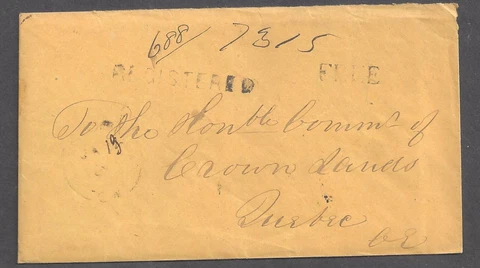 688/ 7315
REGISTERED FREE
To the Honble Commr of
19
Crown Lands
Quebec
CE